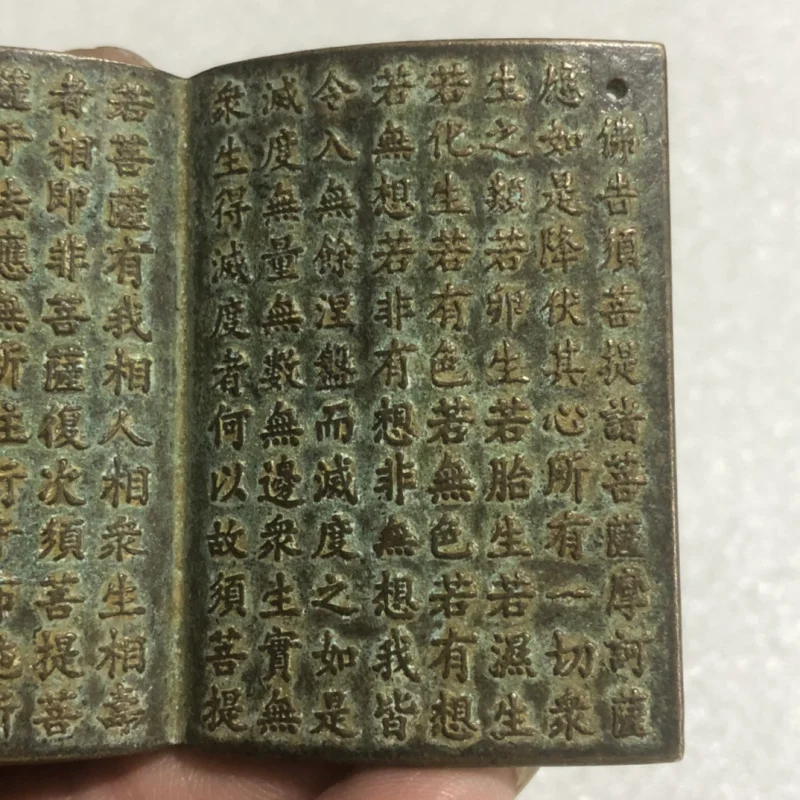 佛告須菩提諸菩薩摩訶薩
應如是降伏其心所有一切衆
生之類若卵生若胎生若濕生
若化生若有色若無色若有想
若無想若非有想非無想我皆
令入無餘涅盤而滅度之如是
滅度無量無數無邊衆生實無
衆生得滅度者何以故須菩提
若菩薩有我相人相衆生相壽
者相即非菩薩復次須菩提菩
薩于法應無所住行于布施所